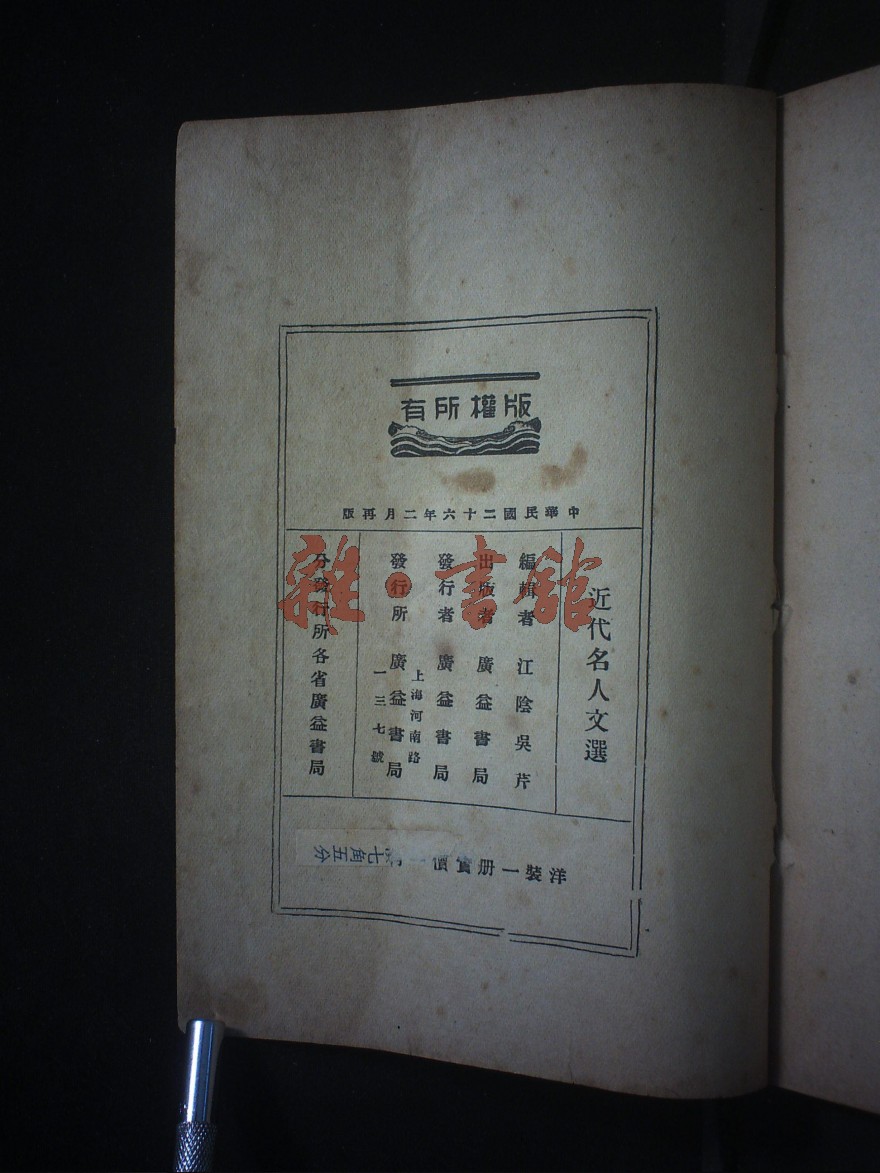 版權所有
中華民國二十六年二月再版
近代名人文選
編輯者 江陰吳芹
出版者 廣益書局
發行者 廣益書局
上海河南路
發行所 廣益書局
一三七號
分發行所各省廣益書局
洋裝一册實價
七角五分
雜·書館